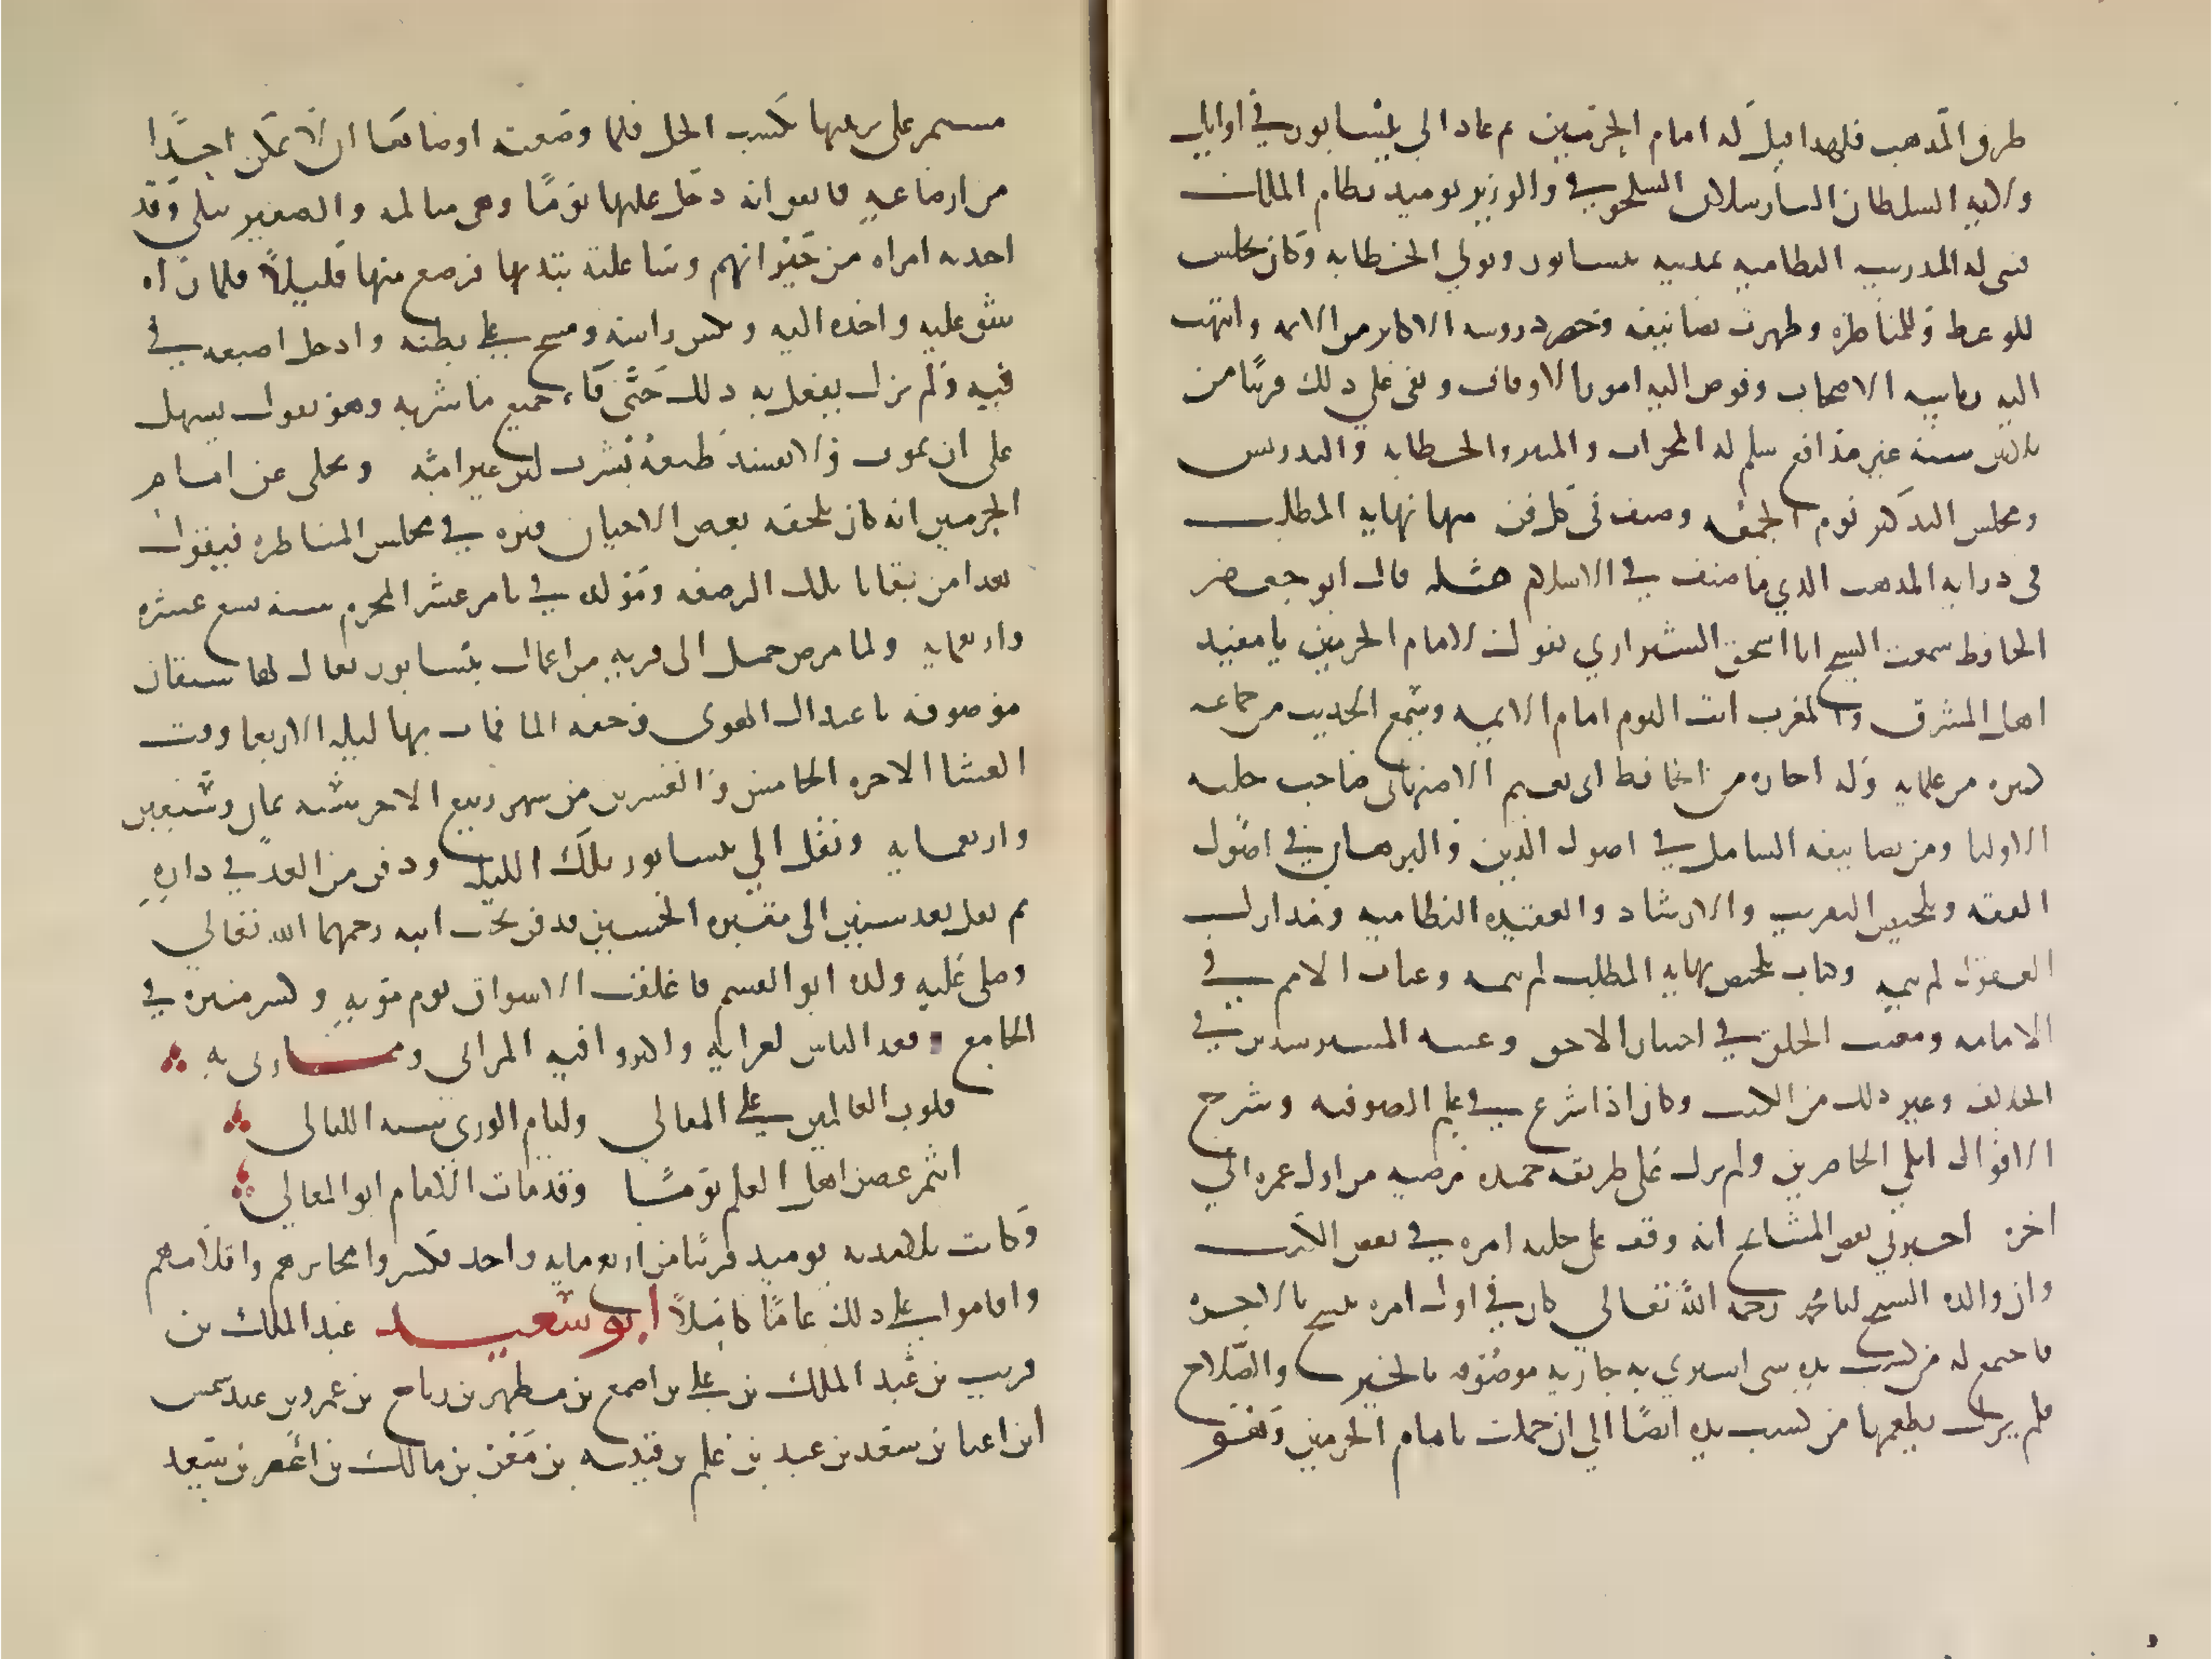 طرق المذهب فلهذا قيل له امام الحرمين ثم عاد الي نيسابور في اوايل
ولاية السلطان الب ارسلان السلجوقي والوزير يوميد نظام الملك
فبنى له المدرسة النظامية بمدينة نيسابور وتولي الخطابة وكان يجلس
للوعظ وللمناظرة وظهرت تصانيفه وحضر دروسه الاكابر من الايمة وانتهت
اليه رياسة الاصحاب وفوض اليه امور الاوقاف وبقي علي ذلك قريبا من
ثلاثين سنة غير مدافع سلم له المحراب والمنبر والخطابة والتدريس
ومجلس التذكير يوم الجمعة وصنف في كل فن منها نهاية المطلب
في دراية المذهب الذي ما صنف في الاسلام مثله قال ابو جعفر
الحافظ سمعت الشيخ ابا اسحق الشيرازي يقول لامام الحرمين يا مفيد
اهل المشرق والمغرب انت اليوم امام الايمة وسمع الحديث من جماعة
كبيرة من علمايه وله اجازة من الحافظ ابي نعيم الاصبهاني صاحب حلية
الاوليا ومن تصانيفه الشامل في اصول الدين والبرهان في اصول
الفقه وتلخيص التقريب والارشاد والعقيدة النظامية ومدارك
العقول لم يتمه وكتاب تلخيص نهاية المطلب لم يتمه وغياث الامم في
الامامة ومغيث الخلق في اختيار الاحق وغنية المسترشدين في
الخلاف وغير ذلك من الكتب وكان اذا شرع في علم الصوفية وشرح
الاقوال ابكي الحاضرين ولم يزل علي طريقة حميدة مرضية من اول عمره الي
اخره اخبرني بعض المشايخ انه وقف علي جلية امره في بعض الكتب
وان والده الشيخ ابا محمد رحمه الله تعالي كان في اول امره ينسخ بالاجرة
فاجتمع له من كسب يده شي اشتري به جارية موصوفة بالخير والصلاح
فلم يزل يطعمها من كسب يده ايضا الي ان حملت بامام الحرمين وهو
مستمر على تربيتها بكسب الحل فلما وضعته اوصاها ان لا تمكن احدا
من ارضاعه فاتفق انه دخل عليها يوما وهي متالمة والصغير يبكي وقد
اخذته امراة من جيرانهم وشاغلته بثديها فرضع منها قليلا فلما راه
شق عليه واخذه اليه ونكس راسه ومسح علي بطنه وادخل اصبعه في
فيه ولم يزل يفعل به ذلك حتى قاء جميع ما شربه وهو يقول يسهل
على ان يموت ولا يفسد طبعه بشرب لبن غير امه ويحكى عن امام
الحرمين انه كان يلحقه بعض الاحيان فترة في مجلس المناظرة فيقول
هذا من بقايا تلك الرضعة ومولده في ثامن عشر المحرم سنة تسع عشرة
واربعماية ولما مرض حمل الى قرية من اعمال نيسابور يقال لها بشتقان
موصوفة باعتدال الهوى وخفة الما فمات بها ليلة الاربعا ووقت
العشا الاخرة الخامس والعشرين من شهر ربيع الاخر سنة ثمان وسبعين
واربعماية ونقل الي نيسابور تلك الليلة ودفن من الغد في داره
ثم نقل بعد سنين الى مقبرة الحسين فدفن بجنب ابيه رحمهما الله تعالي
وصلى عليه ولده ابو القسم فاغلقت الاسواق يوم موته وكسر منبره في
الجامع وقعد الناس لعزايه واكثروا فيه المراثي ومما رثى به
قلوب العالمين علي المقالي وايام الوري شبه الليالي
ايثمر غصن اهل العلم يوما وقد مات الامام ابو المعالي
وكانت تلامذته يوميد قريبا من اربعماية واحد فكسروا محابرهم واقلامهم
واقاموا علي ذلك عاما كاملا ابو سعيد عبد الملك بن
قريب بن عبد الملك بن علي بن اصمع بن مظهر بن رباح بن عمرو بن عبد شمس
ابن اعيا بن سعد بن عبد بن غنم بن قتيبة بن معن بن مالك بن اعصر بن سعد